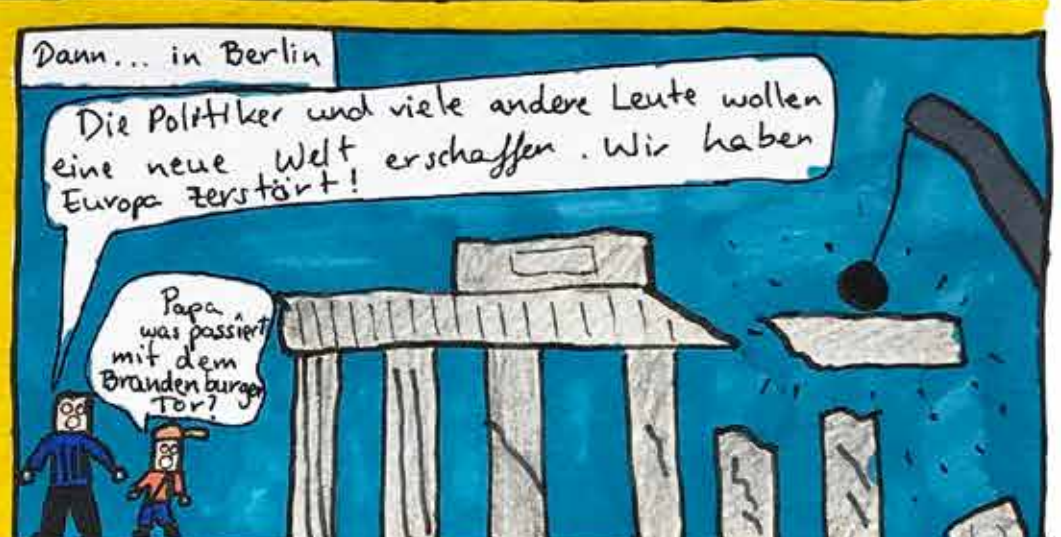 Dann... in Berlin
Die Politiker und viele andere Leute wollen
eine neue Welt erschaffen. Wir haben
Europa zerstört!
Papa
was passiert
mit dem
Brandenburger
Tor?